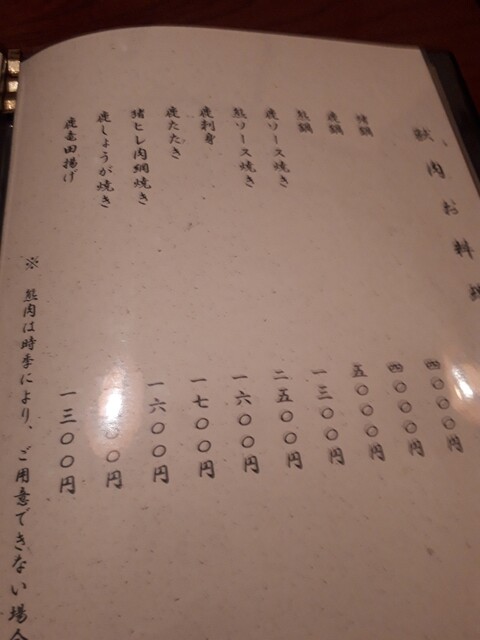 獣肉お料理
猪鍋 四〇〇〇円
鹿鍋 四〇〇〇円
熊鍋 五〇〇〇円
鹿ソース焼き 一三〇〇円
熊ソース焼き 二五〇〇円
鹿刺身 一六〇〇円
鹿たたき 一七〇〇円
猪ヒレ肉網焼き 一六〇〇円
鹿しょうが焼き 〇〇円
鹿竜田揚げ 一三〇〇円
※ 熊肉は時季により、ご用意できない場合